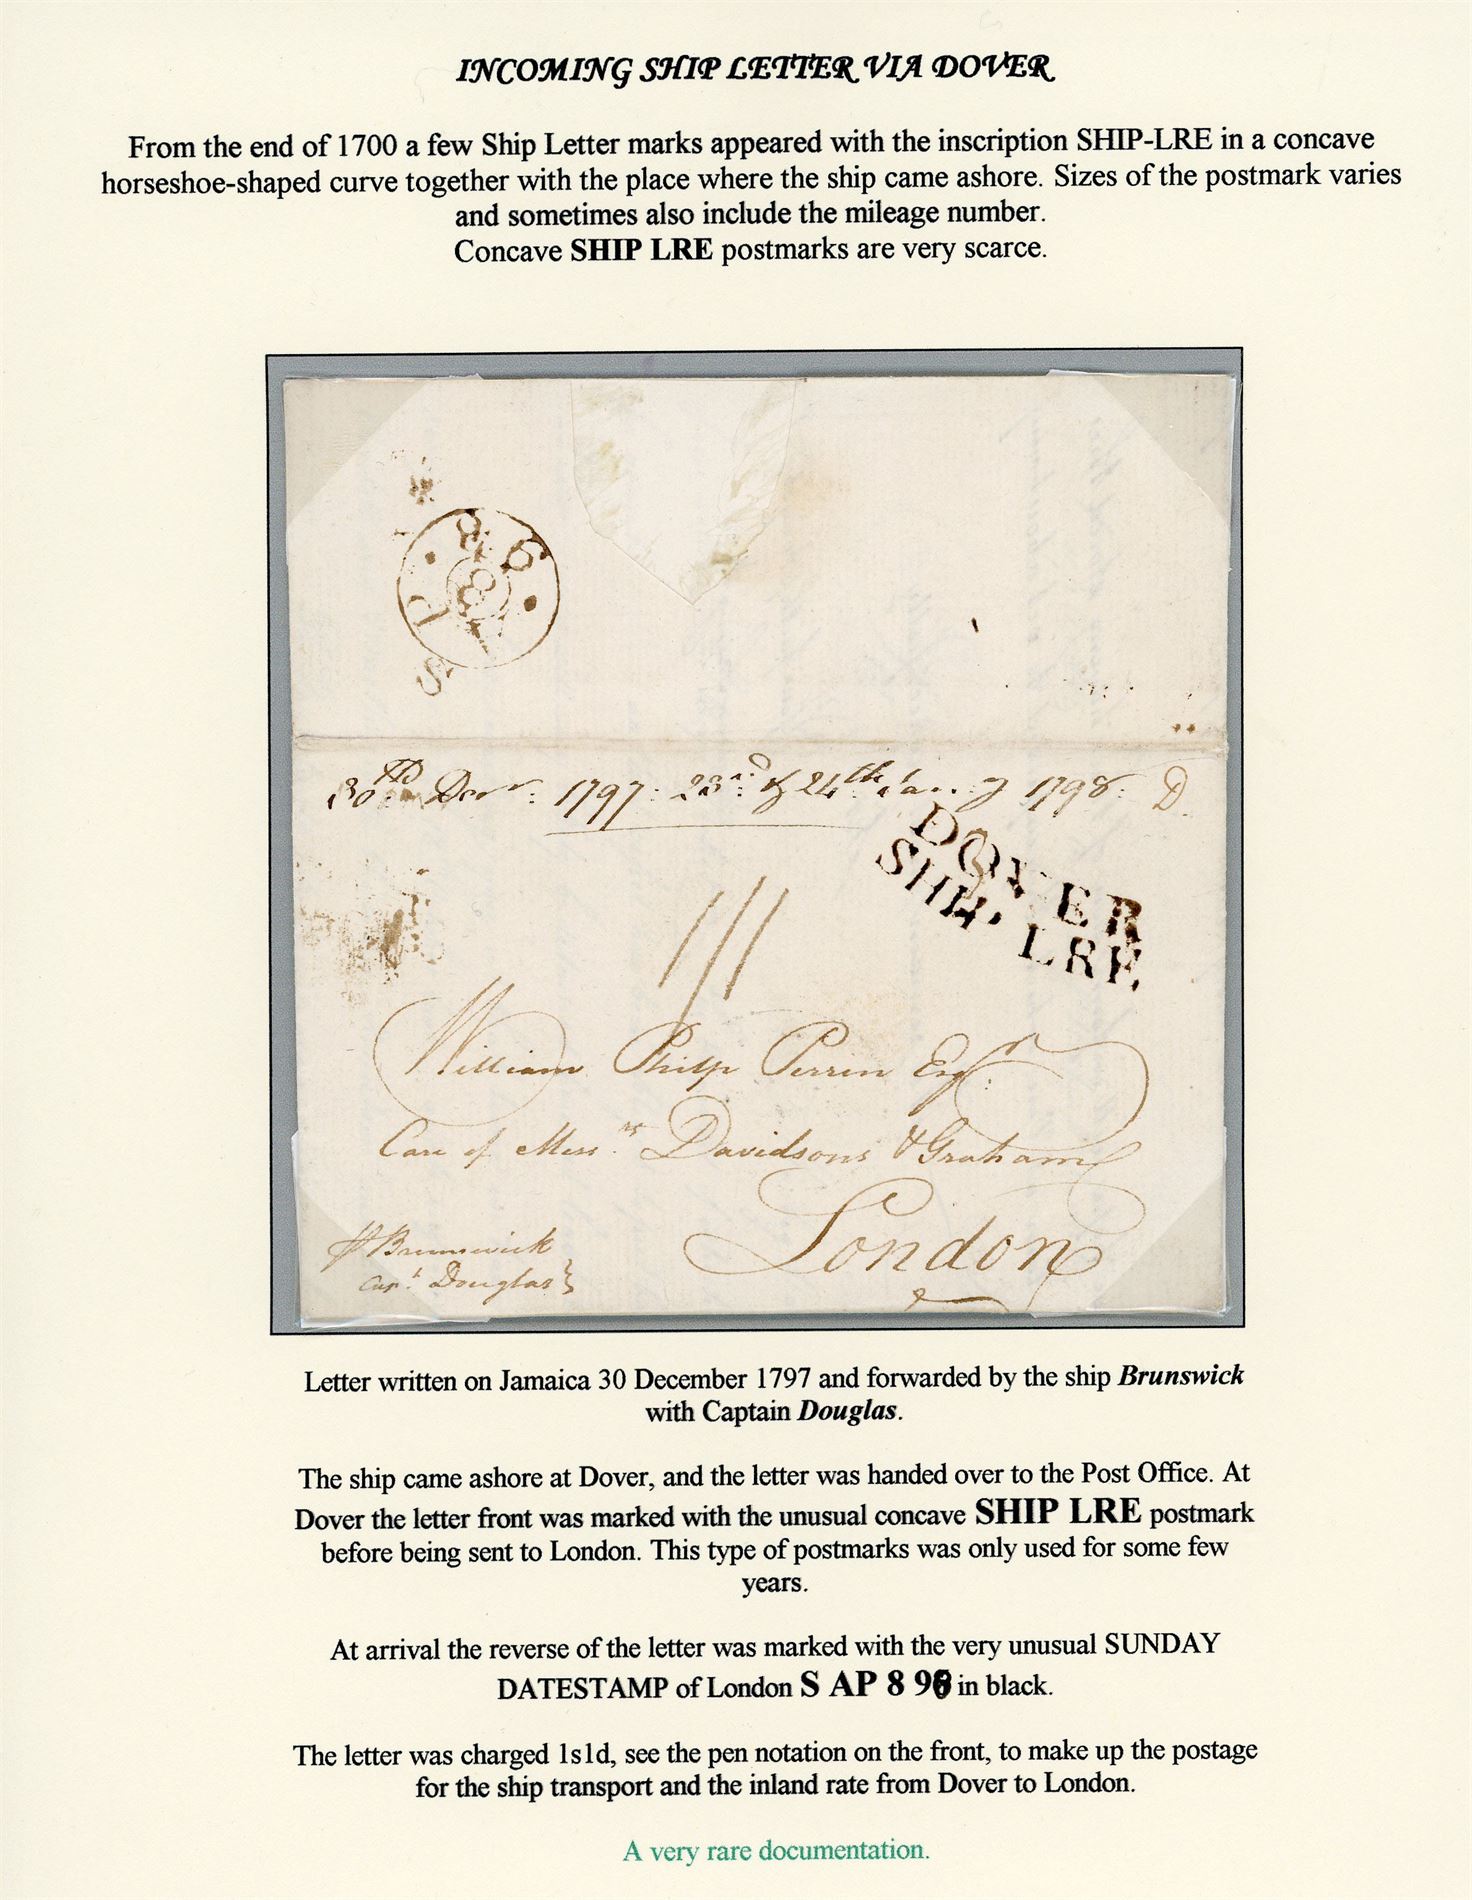 INCOMING SHIP LETTER VIA DOVER
From the end of 1700 a few Ship Letter marks appeared with the inscription SHIP-LRE in a concave
horseshoe-shaped curve together with the place where the ship came ashore. Sizes of the postmark varies
and sometimes also include the mileage number.
Concave SHIP LRE postmarks are very scarce.
S AP 8 98
30th Decr. 1797. 23rd & 24th Jany 1798. D
DOVER
SHIP LRE
William Philp Perrin Esqr.
Care of Messrs. Davidsons & Graham
London
Brunswick
Capt. Douglas
Letter written on Jamaica 30 December 1797 and forwarded by the ship Brunswick
with Captain Douglas.
The ship came ashore at Dover, and the letter was handed over to the Post Office. At
Dover the letter front was marked with the unusual concave SHIP LRE postmark
before being sent to London. This type of postmarks was only used for some few
years.
At arrival the reverse of the letter was marked with the very unusual SUNDAY
DATESTAMP of London S AP 8 98 in black.
The letter was charged 1s1d, see the pen notation on the front, to make up the postage
for the ship transport and the inland rate from Dover to London.
A very rare documentation.